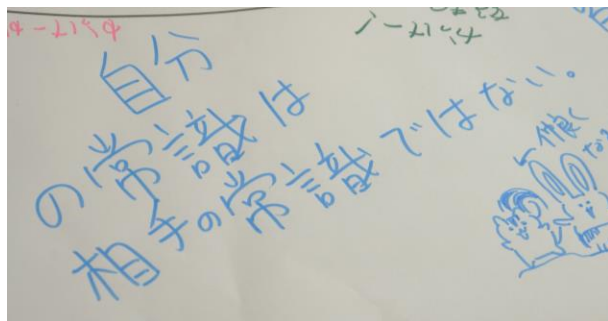 自分
の常識は
相手の常識ではない。
←仲良く